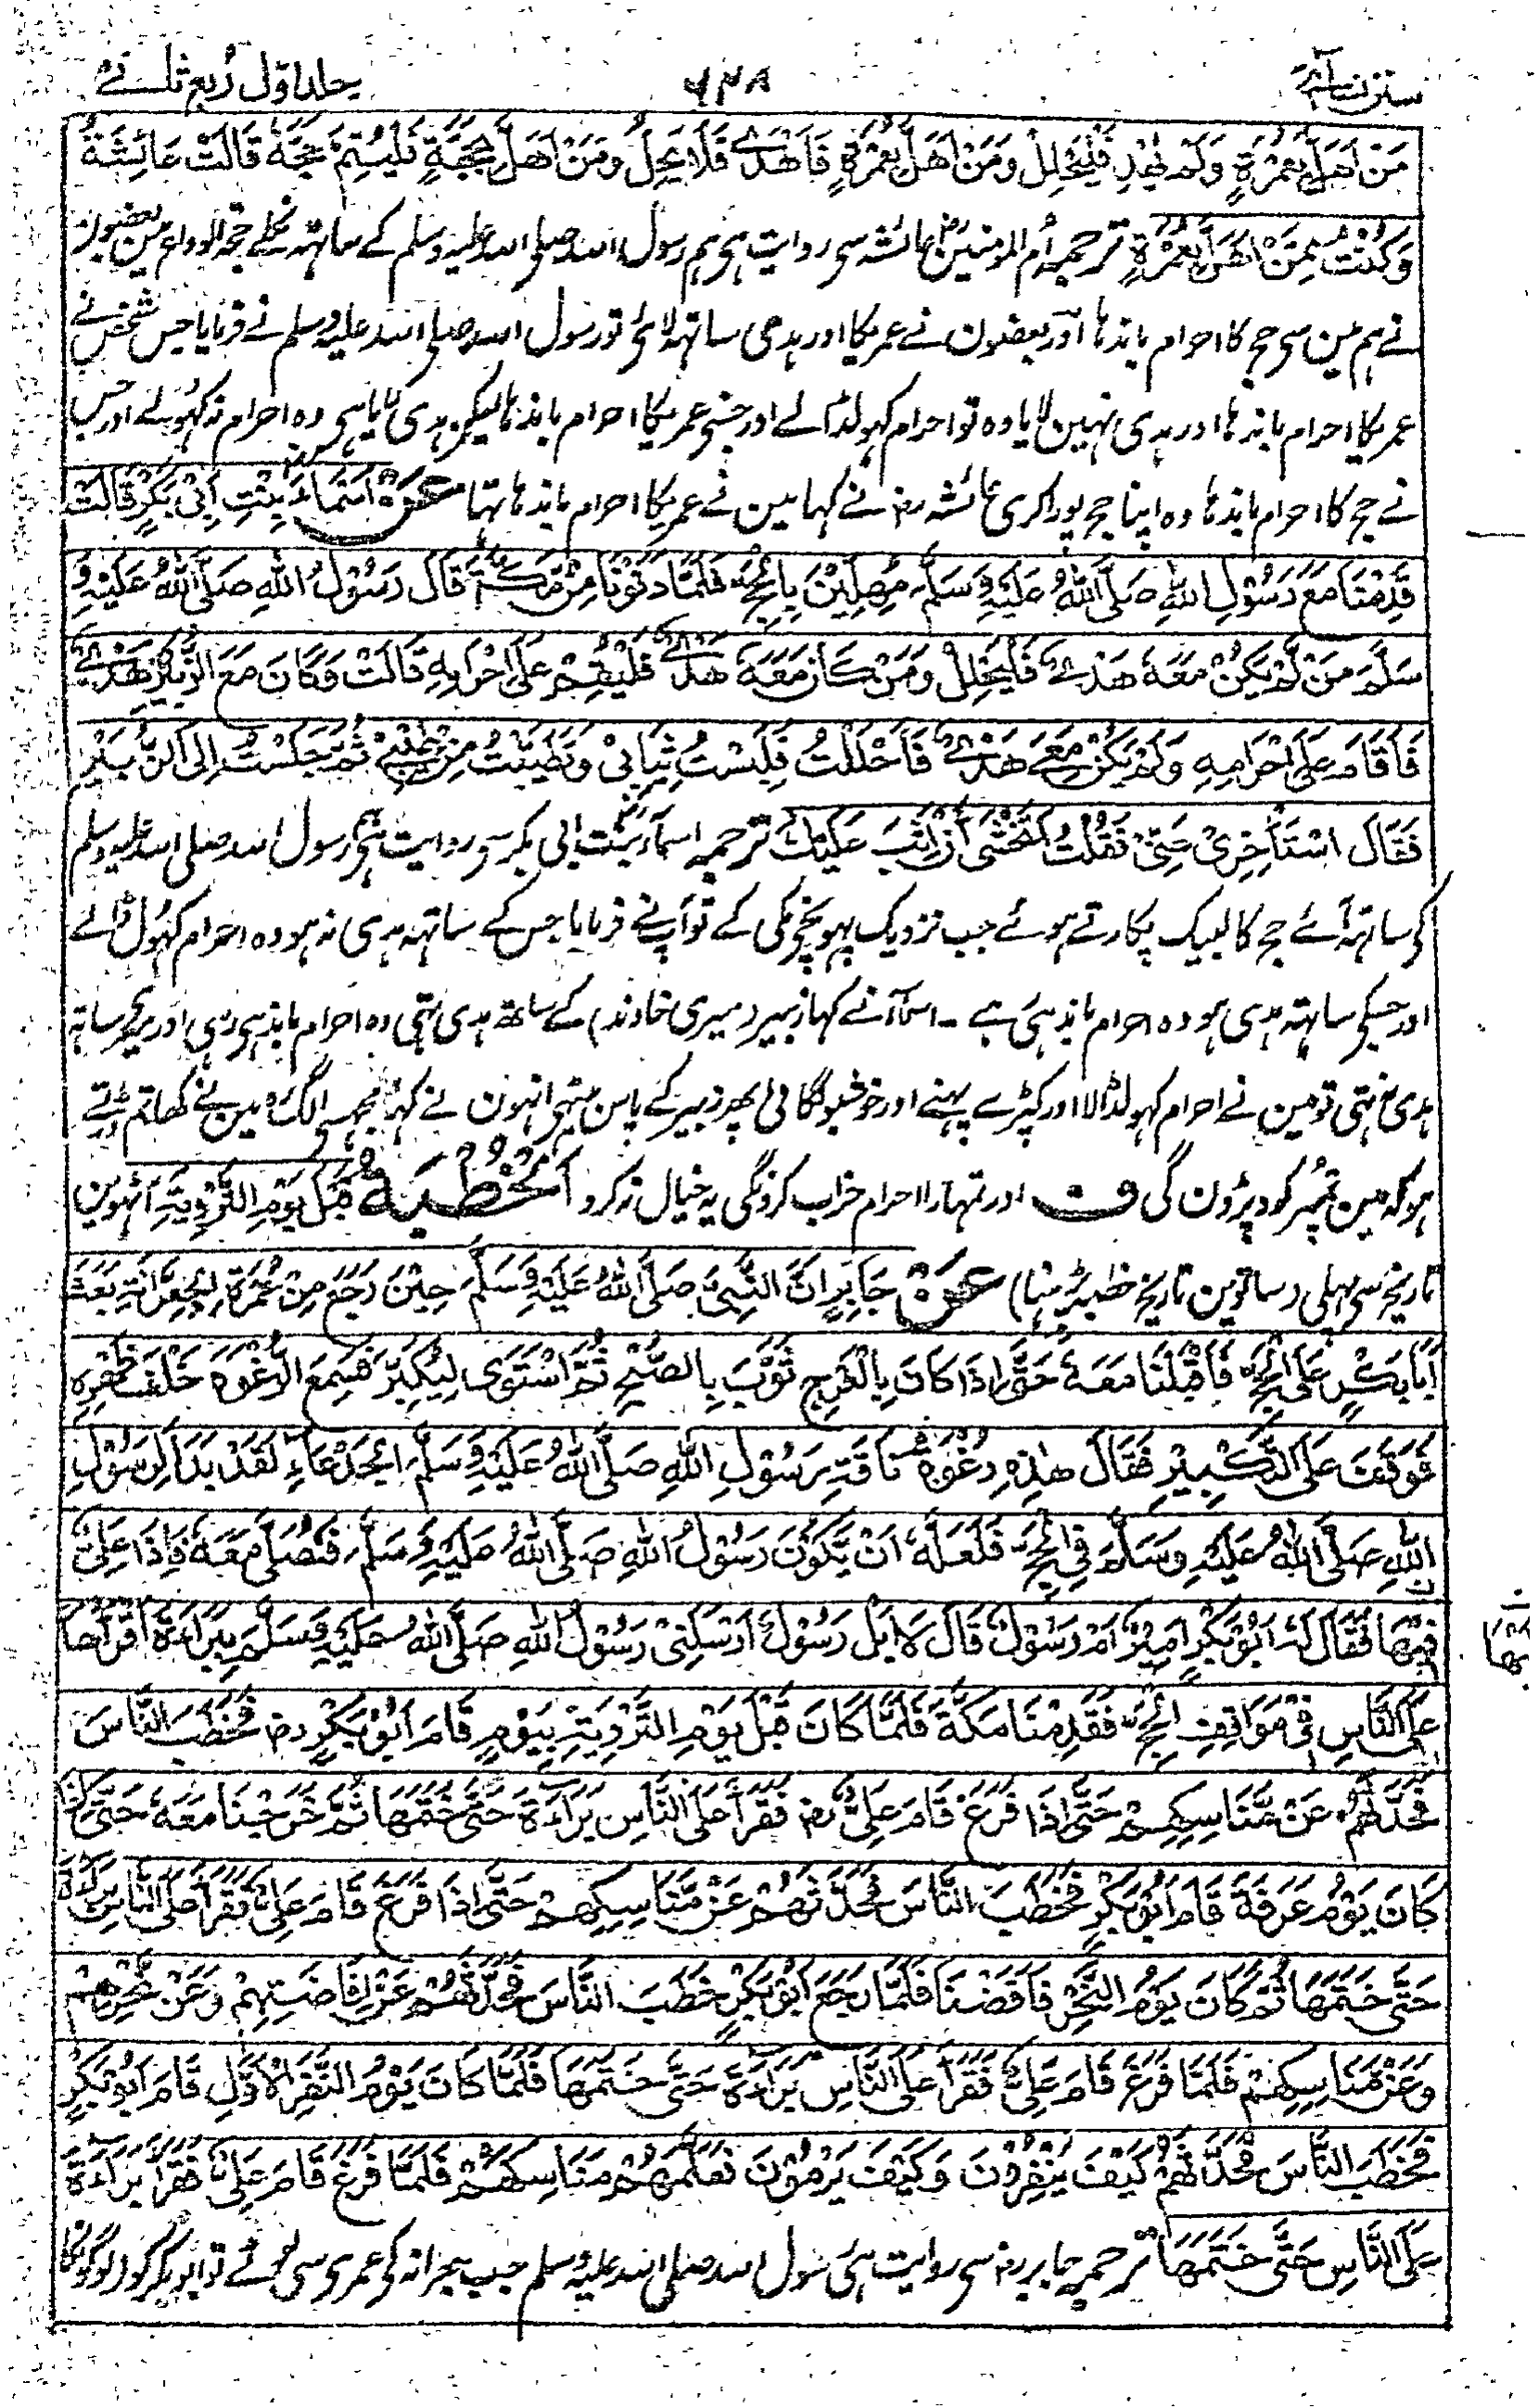 سنن نسائی ۶۴۸ جلد اول ربع ثانی
مَنْ اَهَلَّ بِعُمْرَةٍ وَلَمْ يُهْدِ فَلْيَحْلِلْ وَمَنْ اَهَلَّ بِعُمْرَةٍ فَاَهْدٰى فَلَا يَحِلُّ وَمَنْ اَهَلَّ بِحَجَّةٍ فَلْيُتِمَّ حَجَّهُ قَالَتْ عَائِشَةُ
وَكُنْتُ مِمَّنْ اَهَلَّ بِعُمْرَةٍ ترجمہ اُم المومنین عائشہ سی روایت ہی ہم رسول اللہ صلی اللہ علیہ وسلم کے ساتہہ نکلے حجۃ الوداع مین بعضون
نے ہم مین سی حج کا احرام باندہا اور بعضون نے عمریکا اور ہدی ساتہہ لائے تو رسول اللہ صلی اللہ علیہ وسلم نے فرمایا جس شخص نے
عمریکا احرام باندہا اور ہدی نہین لایا وہ تو احرام کہولڈالے اور جسنی عمریکا احرام باندہا لیکن ہدی لایا ہی وہ احرام نہ کہولے اور جس
نے حج کا احرام باندہا وہ اپنا حج پورا کری عائشہ رض نے کہا مین نے عمریکا احرام باندہا تہا عَنْ اَسْمَاءَ بِنْتِ اَبِىْ بَكْرٍ قَالَتْ
قَدِمْنَا مَعَ رَسُوْلِ اللهِ صَلَّى اللهُ عَلَيْهِ وَسَلَّمَ مُهِلِّيْنَ بِالْحَجِّ فَلَمَّا دَنَوْنَا مِنْ مَّكَّةَ قَالَ رَسُوْلُ اللهِ صَلَّى اللهُ عَلَيْهِ وَ
سَلَّمَ مَنْ لَّمْ يَكُنْ مَعَهٗ هَدْىٌ فَلْيَحْلِلْ وَمَنْ كَانَ مَعَهٗ هَدْىٌ فَلْيُقِمْ عَلٰى اِحْرَامِهٖ قَالَتْ وَكَانَ مَعَ الزُّبَيْرِ هَدْىٌ
فَاَقَامَ عَلٰى اِحْرَامِهٖ وَلَمْ يَكُنْ مَعِىْ هَدْىٌ فَاَحْلَلْتُ فَلَبِسْتُ ثِيَابِىْ وَتَطَيَّبْتُ مِنْ طِيْبِىْ ثُمَّ جَلَسْتُ اِلَى الزُّبَيْرِ
فَقَالَ اسْتَاْخِرِىْ عَنِّىْ فَقُلْتُ اَتَخْشٰى اَنْ اَثِبَ عَلَيْكَ ترجمہ اسماء بنت ابی بکر سے روایت ہی کہ رسول اللہ صلی اللہ علیہ وسلم
کی ساتہہ آئے حج کا لبیک پکارتے ہوئے جب نزدیک پہونچی مکی کے تو آپنے فرمایا جس کے ساتہہ ہدی نہ ہو وہ احرام کہول ڈالے
اور جسکی ساتہہ ہدی ہو وہ احرام باندہی رہے ۔ اسماء نے کہا زبیر (میری خاوند) کے ساتھ ہدی تہی وہ احرام باندہی رہی اور میری ساتہ
ہدی نہ تہی تو مین نے احرام کہولڈالا اور کپڑے پہنے اور خوشبو لگائی پھر زبیر کے پاس بیٹھی انہون نے کہا مجہسے الگ رہ مین نے کہا تم ڈرتے
ہو کہ مین تمپر کود پڑون گی ف اور تمہارا احرام خراب کرونگی یہ خیال نہ کرو اَلْخُطْبَةُ قَبْلَ يَوْمِ التَّرْوِيَةِ آٹہوین
تاریخ سی پہلی (ساتوین تاریخ خطبہ پڑہنا) عَنْ جَابِرٍ اَنَّ النَّبِىَّ صَلَّى اللهُ عَلَيْهِ وَسَلَّمَ حِيْنَ رَجَعَ مِنْ عُمْرَةِ الْجِعِرَّانَةِ بَعَثَ
اَبَا بَكْرٍ عَلَى الْحَجِّ فَاَقْبَلْنَا مَعَهٗ حَتّٰى اِذَا كَانَ بِالْعَرْجِ ثَوَّبَ بِالصُّبْحِ ثُمَّ اسْتَوٰى لِيُكَبِّرَ فَسَمِعَ الرَّغْوَةَ خَلْفَ ظَهْرِهٖ
فَوَقَفَ عَلَى التَّكْبِيْرِ فَقَالَ هٰذِهٖ رَغْوَةُ نَاقَةِ رَسُوْلِ اللهِ صَلَّى اللهُ عَلَيْهِ وَسَلَّمَ الْجَدْعَاءِ لَقَدْ بَدَا لِرَسُوْلِ
اللهِ صَلَّى اللهُ عَلَيْهِ وَسَلَّمَ فِى الْحَجِّ فَلَعَلَّهٗ اَنْ يَّكُوْنَ رَسُوْلُ اللهِ صَلَّى اللهُ عَلَيْهِ وَسَلَّمَ فَنُصَلِّىَ مَعَهٗ فَاِذَا عَلِىٌّ
فِيْهَا فَقَالَ لَهٗ اَبُوْ بَكْرٍ اَمِيْرٌ اَمْ رَسُوْلٌ قَالَ لَا بَلْ رَسُوْلٌ اَرْسَلَنِىْ رَسُوْلُ اللهِ صَلَّى اللهُ عَلَيْهِ وَسَلَّمَ بِبَرَاءَةَ اَقْرَأُهَا
بها
عَلَى النَّاسِ فِىْ مَوَاقِفِ الْحَجِّ فَقَدِمْنَا مَكَّةَ فَلَمَّا كَانَ قَبْلَ يَوْمِ التَّرْوِيَةِ بِيَوْمٍ قَامَ اَبُوْ بَكْرٍ رض فَخَطَبَ النَّاسَ
فَحَدَّثَهُمْ عَنْ مَّنَاسِكِهِمْ حَتّٰى اِذَا فَرَغَ قَامَ عَلِىٌّ رض فَقَرَأَ عَلَى النَّاسِ بَرَاءَةَ حَتّٰى خَتَمَهَا ثُمَّ خَرَجْنَا مَعَهٗ حَتّٰى اِذَا
كَانَ يَوْمُ عَرَفَةَ قَامَ اَبُوْ بَكْرٍ فَخَطَبَ النَّاسَ فَحَدَّثَهُمْ عَنْ مَّنَاسِكِهِمْ حَتّٰى اِذَا فَرَغَ قَامَ عَلِىٌّ فَقَرَأَ عَلَى النَّاسِ بَرَاءَةَ
حَتّٰى خَتَمَهَا ثُمَّ كَانَ يَوْمُ النَّحْرِ فَاَفَضْنَا فَلَمَّا رَجَعَ اَبُوْ بَكْرٍ خَطَبَ النَّاسَ فَحَدَّثَهُمْ عَنْ اِفَاضَتِهِمْ وَعَنْ نَّحْرِهِمْ
وَعَنْ مَّنَاسِكِهِمْ فَلَمَّا فَرَغَ قَامَ عَلِىٌّ فَقَرَأَ عَلَى النَّاسِ بَرَاءَةَ حَتّٰى خَتَمَهَا فَلَمَّا كَانَ يَوْمُ النَّفْرِ الْاَوَّلِ قَامَ اَبُوْ بَكْرٍ
فَخَطَبَ النَّاسَ فَحَدَّثَهُمْ كَيْفَ يَنْفِرُوْنَ وَكَيْفَ يَرْمُوْنَ فَعَلَّمَهُمْ مَنَاسِكَهُمْ فَلَمَّا فَرَغَ قَامَ عَلِىٌّ فَقَرَأَ بَرَاءَةَ
عَلَى النَّاسِ حَتّٰى خَتَمَهَا ترجمہ جابر رض سی روایت ہی رسول اللہ صلی اللہ علیہ وسلم جب جعرانہ کی عمری سی لوٹے تو ابوبکر کو لوگونکا